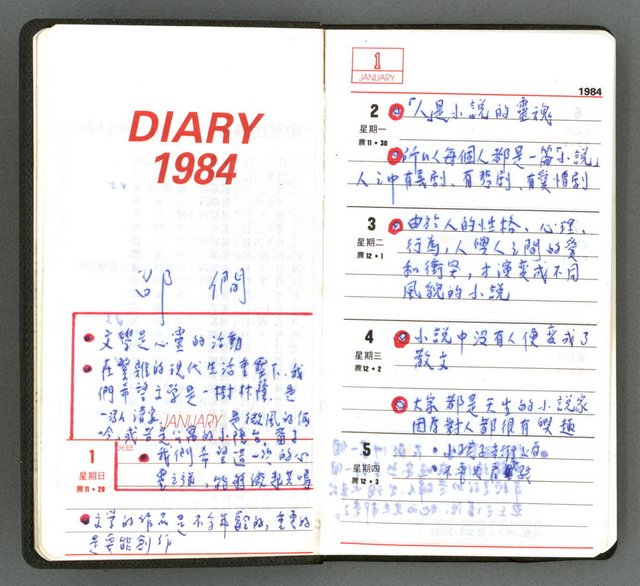 DIARY
1984
邵 僩
文學是心靈的活動
在繁雜的現代生活重壓下、我
們希望文學是一樹林蔭、是
JANUARY 是微風的低
吟、或者是公寓的小陽台。
1
元旦
星期日
農11·29
我們希望這一次的心
靈之旅、能激起共鳴
文學的作品是不分年齡的，重要的
是要能創作
1
JANUARY
1984
2
星期一
農11·30
「人」是小說的靈魂
所以每個人都是一篇「小說」
人之中有喜劇、有悲劇、有愛情劇
3
星期二
農12·1
由於人的性格、心理、
行為，人與人之間的愛
和衝突，才演變成不同
風貌的小說
4
星期三
農12·2
小說中沒有人便變成了
散文
大家都是天生的小說家
因為對人都很有興趣
5
星期四
農12·3